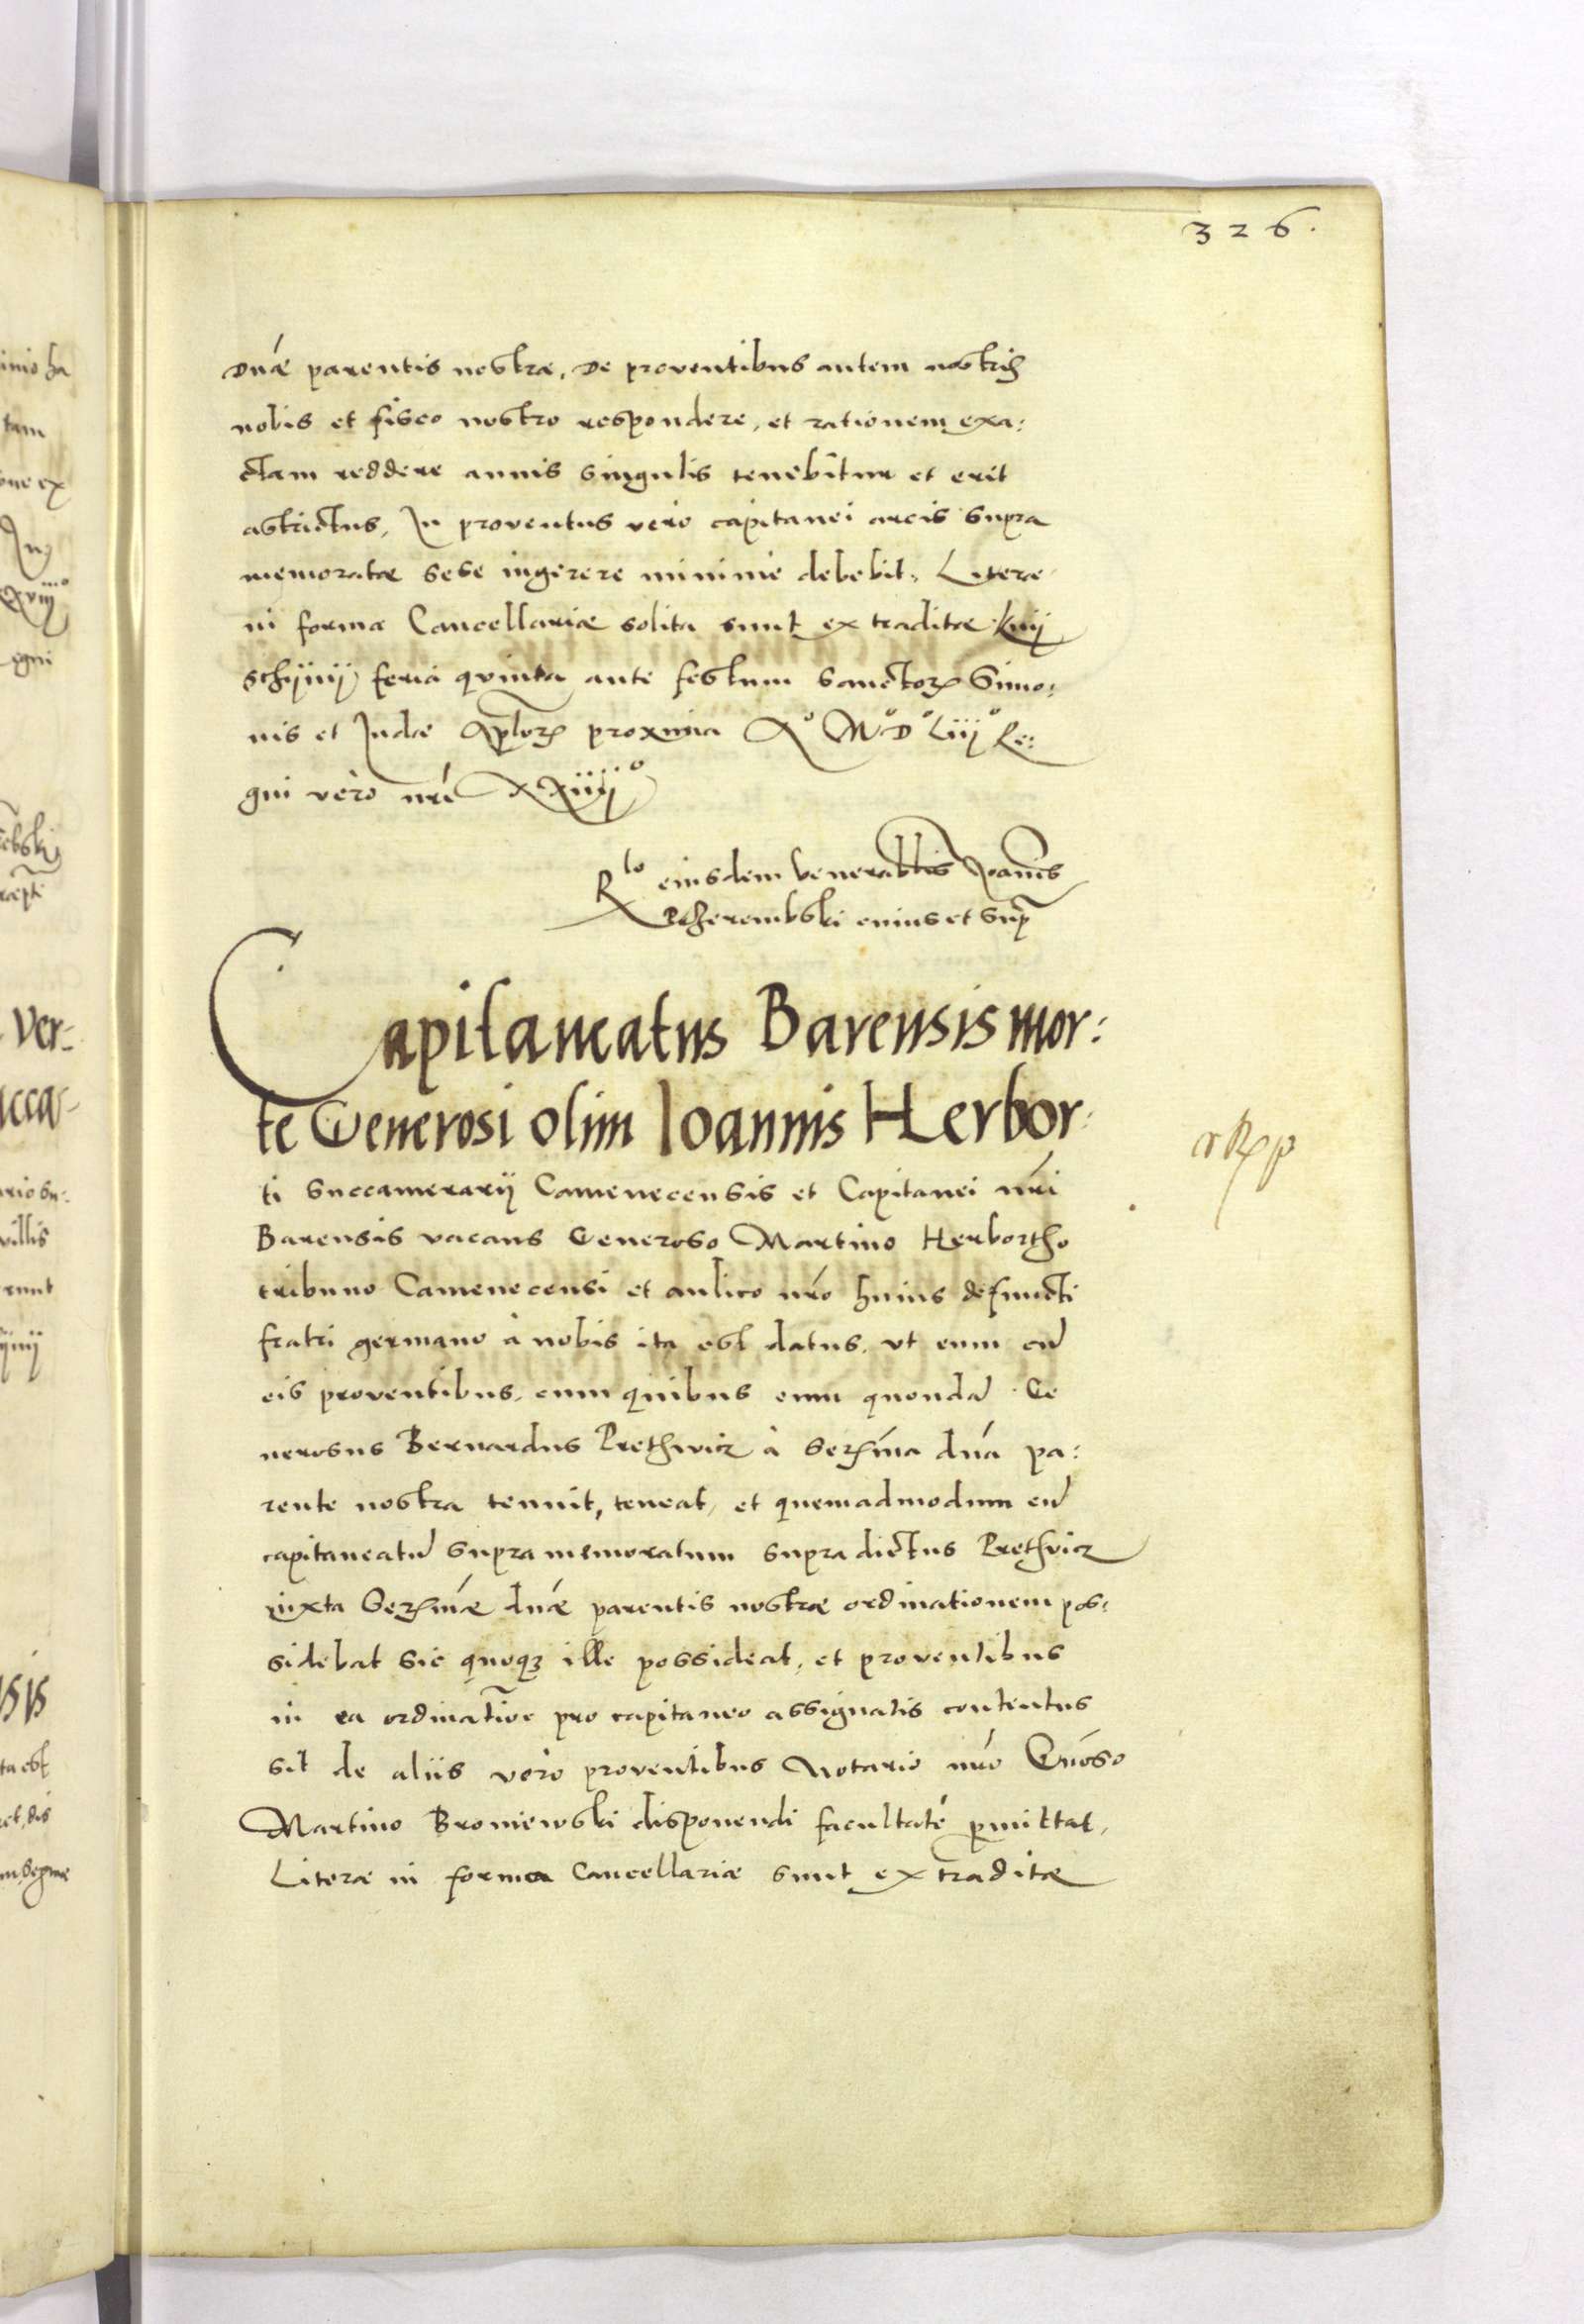 326.
Dnae parentis nostrae, De proventibus autem nostris
nobis et fisco nostro respondere, et rationem exa:
ctam reddere annis singulis tenebitur et erit
astrictus, In proventus vero capitanei arcis supra
memoratae sese ingerere minime debebit. Literae
in forma Cancellariae solita sunt ex traditae knij
schijnij feria quinta ante festum sanctorꝝ Simo:
nis et Judae Aplorꝝ proxima A° M° D° Liij° Re:
gni vero nri XXiiij°
Rlo eiusdem venerabilis Joannis
Przerembski cuius et supra
Capitaneatus Barensis mor:
te Generosi olim Joannis Herbor:
ti Succamerarij Camenecensis et Capitanei nri
Barensis vacans Generoso Martino Herbortho
tribuno Camenecensi et aulico nro huius defuncti
fratri germano à nobis ita est datus, ut eum cū
eis proventibus, cum quibus eum quondā Ge
nerosus Bernardus Prethwicz à Serma dna pa:
rente nostra tenuit, teneat, et quemadmodum eū
capitaneatū supra memoratum supra dictus Prethvicz
iuxta Sermae dnae parentis nostrae ordinationem pos:
sidebat sic quoqꝫ ille possideat, et proventibus
in ea ordinatione pro capitaneo assignatis contentus
sit de aliis vero proventibus Notario nro Gnoso
Martino Broniewski disponendi facultatē pmittat,
Literae in forma Cancellariae sunt ex traditae